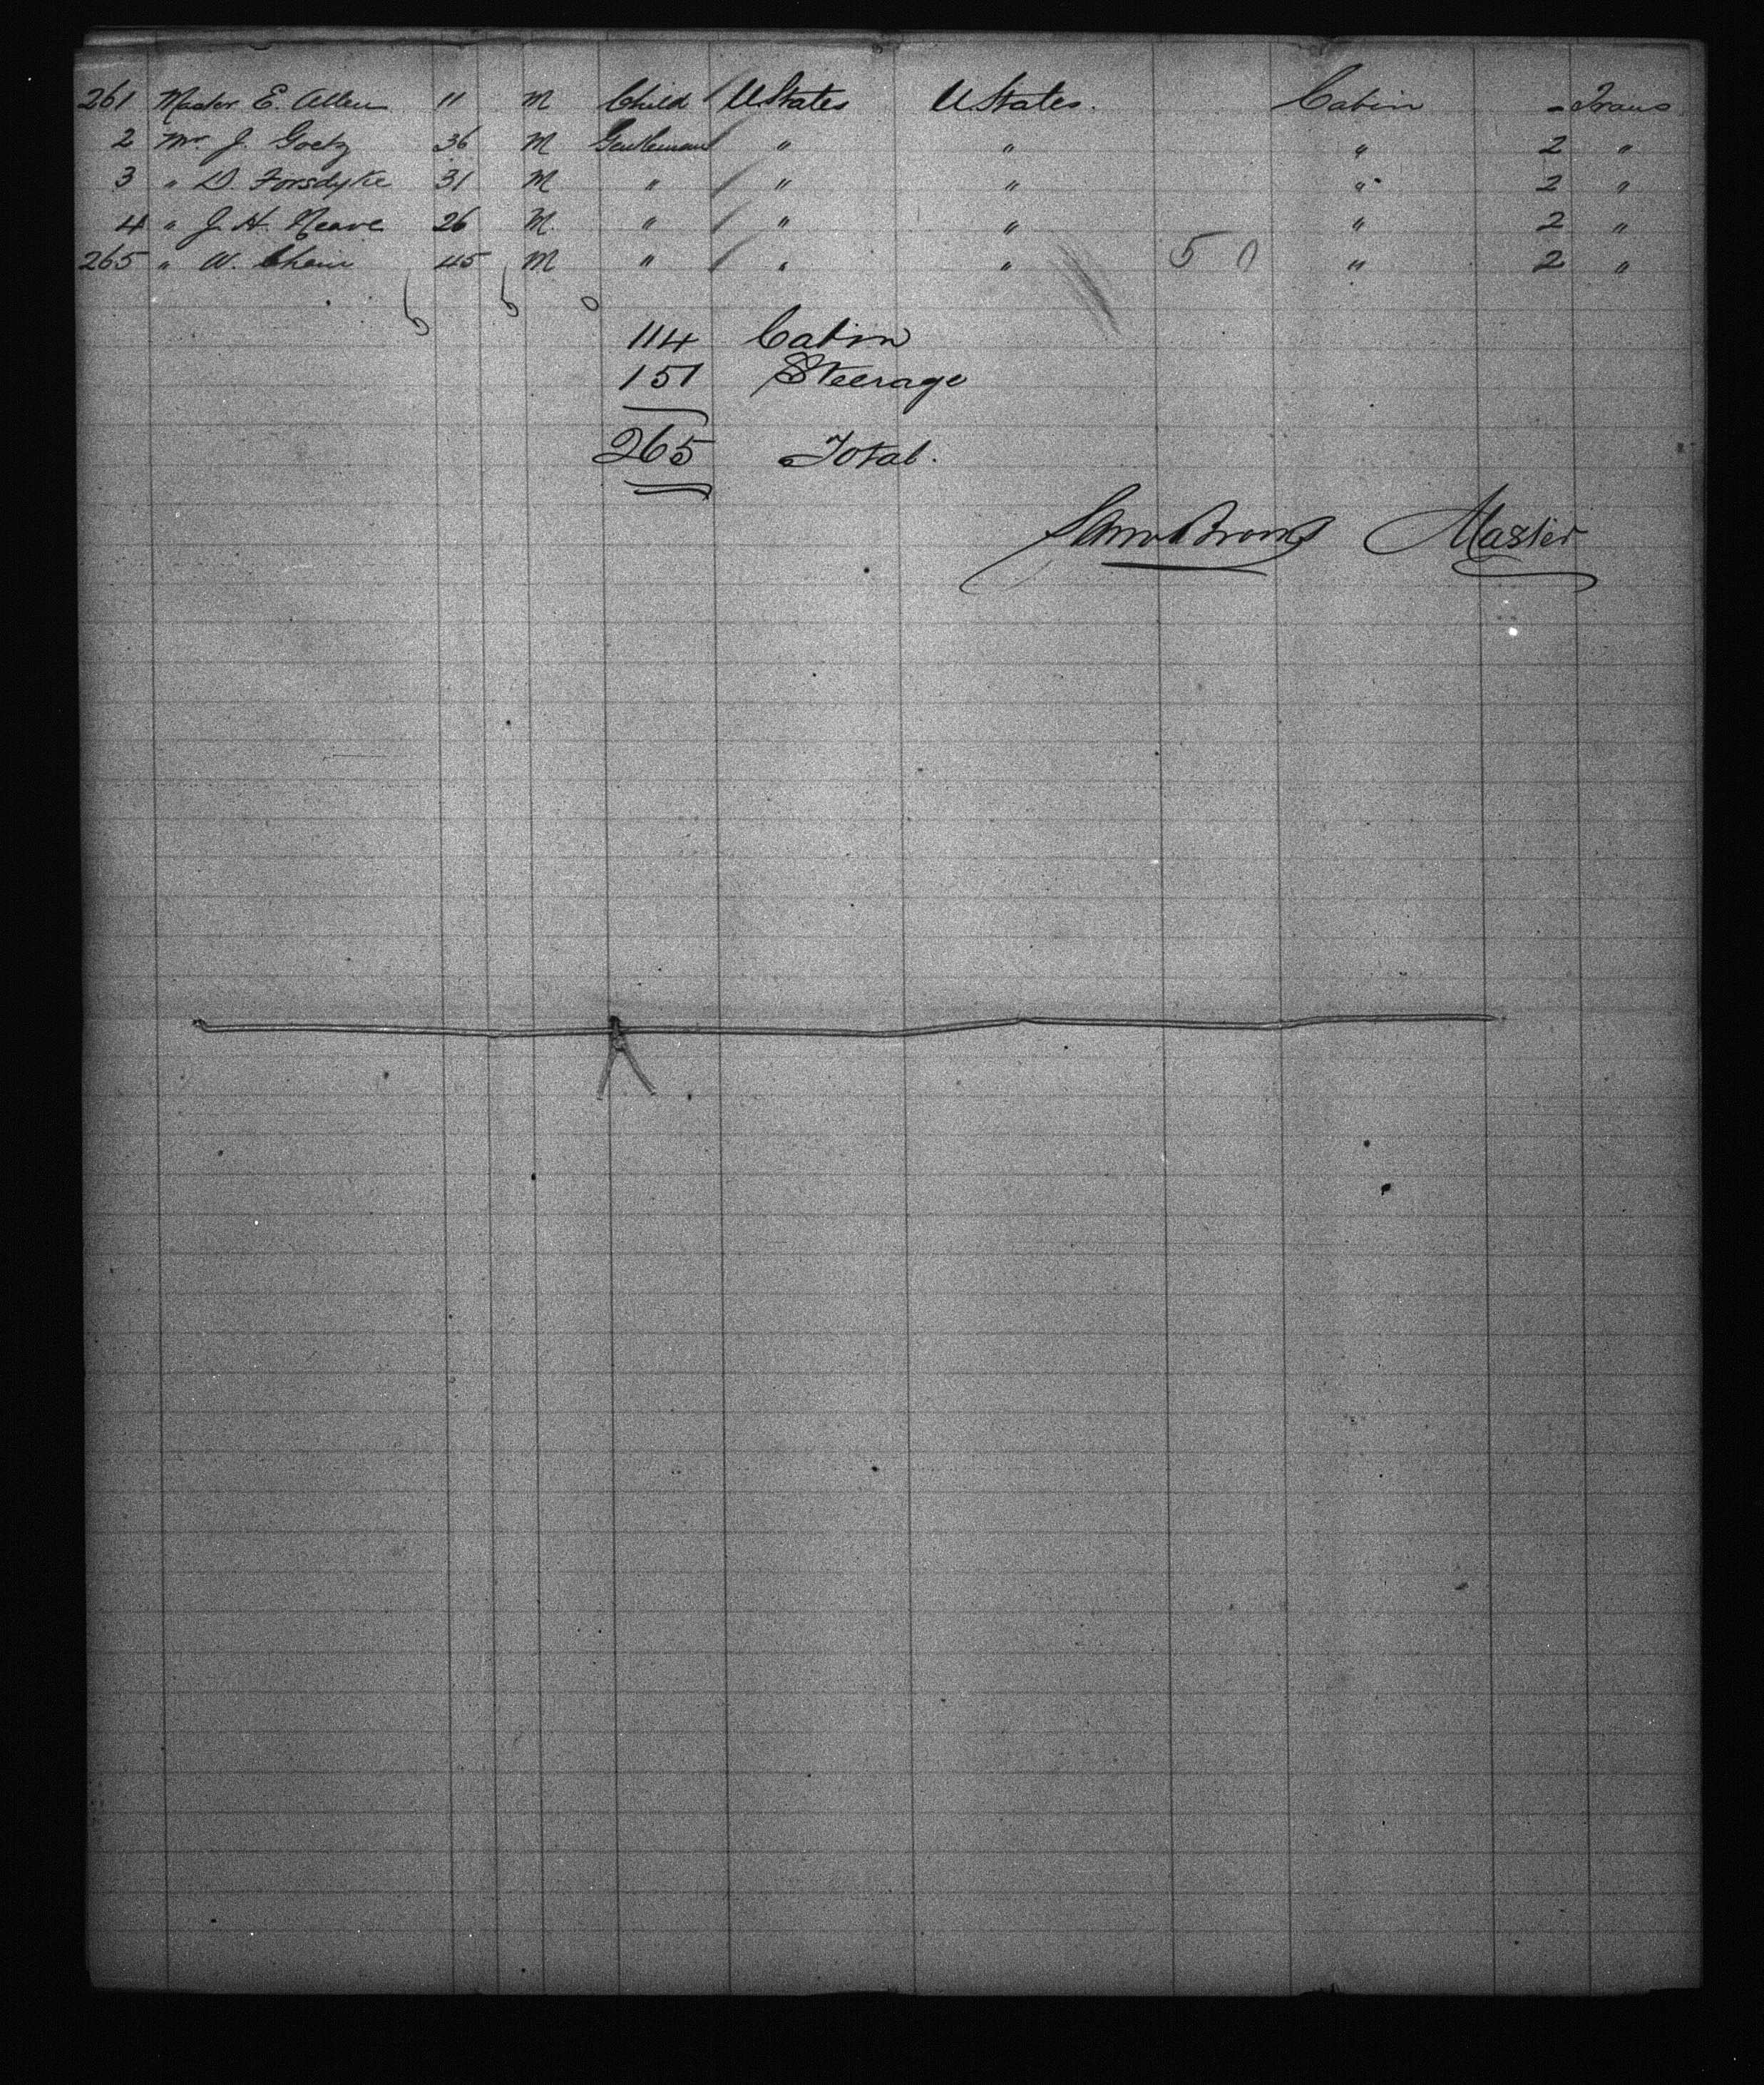 261 Master E. Allen 11 M Child U States U States. Cabin - Trans
2 Mr. J. Goetz 36 M Gentleman " " " 2 "
3 " D. Forsdyke 31 M " " " " 2 "
4 " J. H. Neave 26 M. " " " " 2 "
265 " W. 45 M " " " 50 " 2 "
6 6 0
114 Cabin
151 Steerage
265 Total.
Brooks Master